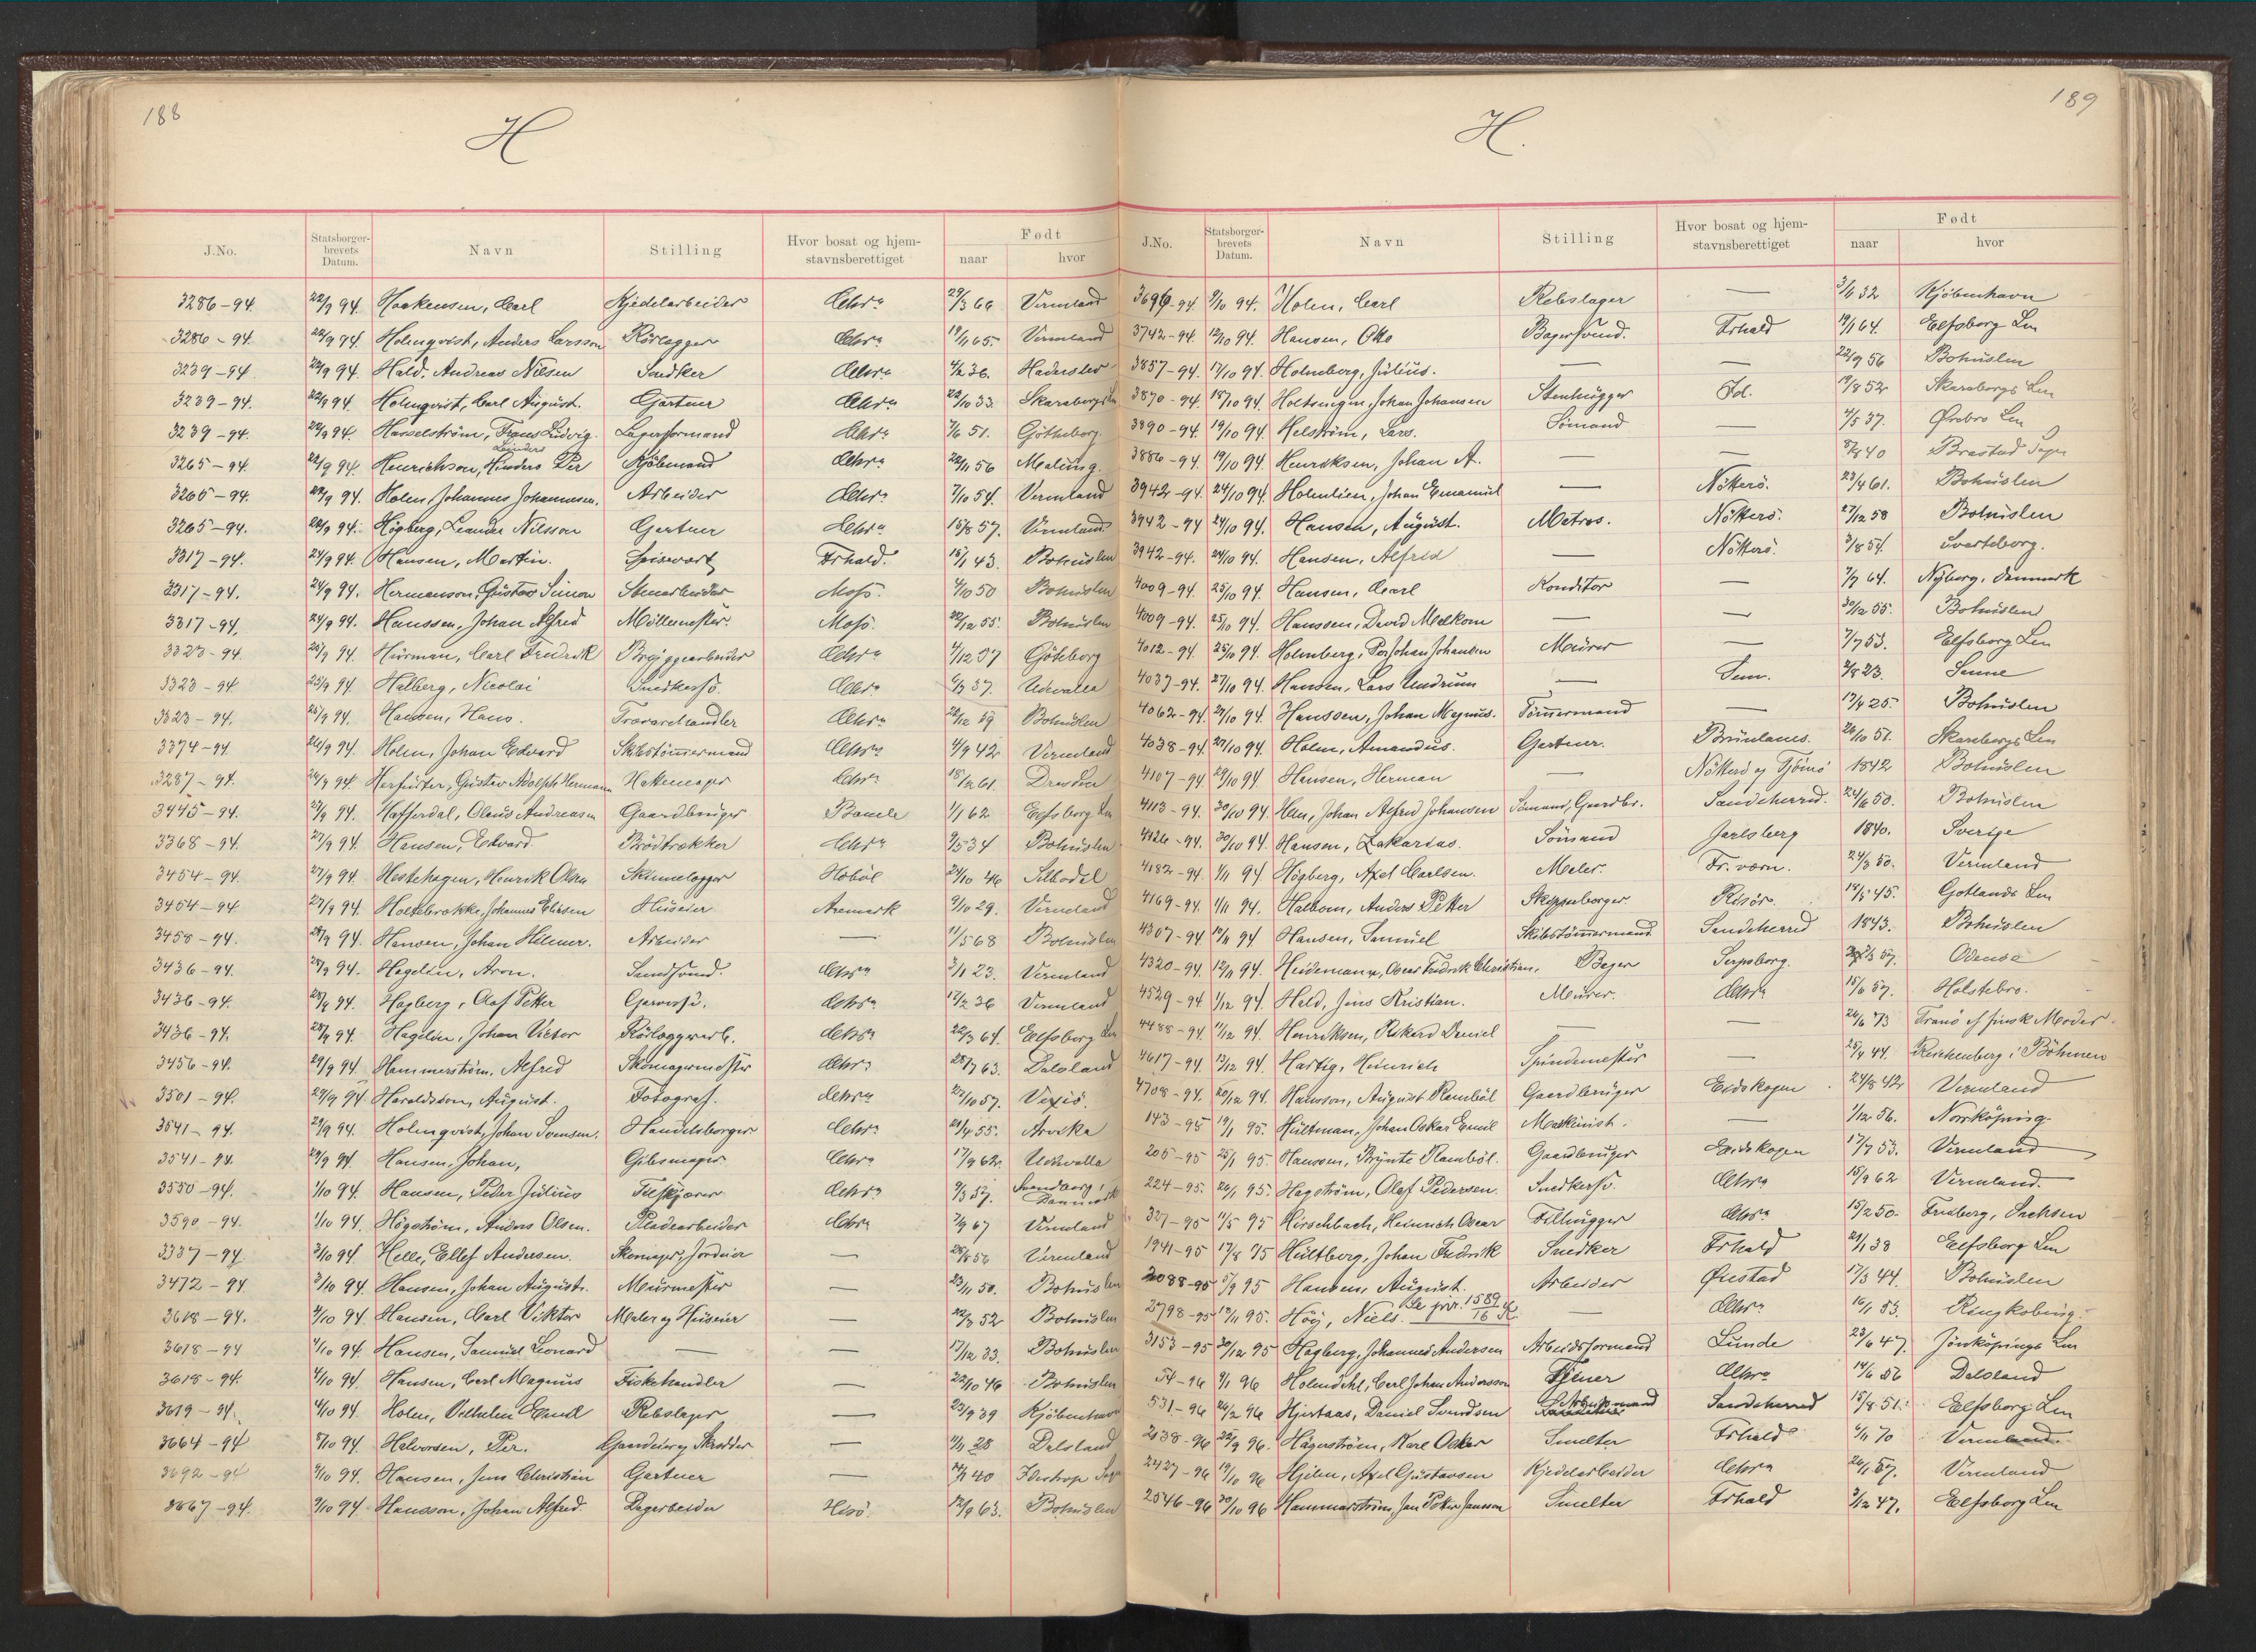 188
H
J.No. Statsborger-brevets Datum. Navn Stilling Hvor bosat og hjem-stavnsberettiget Født naar hvor
3286-94. 22/9 94. Haakensen, Carl Kjedelarbeider Chra 29/3 66 Vermland
3286-94. 22/9 94. Holmqvist, Anders Larsson Rörlægger Chra 19/1 65. Vermland
3239-94 22/9 94. Hald, Andreas Nilsen Snedker Chra 36. Haderslev
3239-94. 22/9 94. Holmqvist, Carl August. Gartner Chra 22/10 33. Skaraborgs Ln
3239-94. 22/9 94. Hasselström, Frans Ludvig. Lagerformand Chra 7/6 51. Götheborg.
3265-94 22/9 94. Henrichson, Per Kjölemand Chra 22/11 56
3265-94. 22/9 94. Holen, Johannes Johannesen. Arbeider Chra 7/10 54. Vermland
3265-94. 22/9 94. Högberg, Leander Nilsson Gartner Chra 15/8 57. Vermland
3317-94. 24/9 94. Hansen, Martin. Spisevært Frhald. 15/1 43. Bohuslen
3317-94. 24/9 94. Hermanson, Gustav Simon Stenarbeider Moss. 4/10 50 Bohuslen
3317-94. 24/9 94. Hanssen, Johan Alfred Möllemester. Moss. 22/12 55. Bohuslen
3323-94. 25/9 94. Hurman, Carl Fredrik Bryggearbeider Chra /12 37 Göteborg
3323-94 25/9 94. Halberg, Nicolai Snedkersv. Chra 37. Udevalla
3323-94. 25/9 94. Hansen, Hans. Trævarehandler Chra 28/12 59 Bohuslen
3374-94 26/9 94. Holm, Johan Edvard Skibstömmermand Chra 4/9 42 Vermland
3287-94. 26/9 94. Herfurter, Gustav Adolph Hermann Hattemager Chra 15/12 61. Dresden
3445-94. 27/9 94. Hafferdal, Olaus Andreasen Gaardbruger Bamle 1/1 62 Elfsborg Ln
3368-94. 27/9 94. Hansen, Edvard. Brödtrækker Chra 9/5 34 Bohuslen
3454-94. 27/9 94. Hestehagen, Henrik Olsen Skinnelægger Hobøl 24/10 46 Silbodal
3454-94 27/9 94. Holtebrække, Johannes Eliesen Huseier Aremark 9/10 29. Vermland
3458-94. 28/9 94. Hansen, Johan Hilmer. Arbeider — 11/5 68 Bohuslen
3436-94. 28/9 94. Hagelin, Aron. Chra 3/1 23. Vermland
3436-94. 28/9 94. Hagberg, Olaf Petter Garversv. Chra 17/2 36 Vermland
3436-94. 28/9 94. Hagelin, Johan Victor Rörlæggerarb. Chra 22/3 64. Elfsborg Ln
3456-94. 29/9 94. Hammerström, Alfred Skomagermester Chra 28/7 63. Dalsland
3501-94. 29/9 94. Haraldsson, August. Fotograf. Chra 22/10 57. Vexiö.
3541-94. 29/9 94. Holmqvist, Johan Svensen. Handelsborger Chra 21/4 55. Arvika
3541-94. 29/9 94. Hansen, Johan, Gibsmager. Chra 17/9 62. Udevalla
3550-94. 1/10 94. Hansen, Peder Julius Tilskjærer Chra 9/3 57. Svendborg, Danmark
3590-94. 1/10 94. Högström, Anders Olsen. Pladearbeider Chra 7/9 67 Vermland
3337-94 3/10 94. Helle, Ellef Andersen. Skomager, Jordeier — 25/8 56 Vermland
3472-94 3/10 94. Hansen, Johan August. Murmester — 23/11 50. Bohuslen
3618-94. 4/10 94. Hansen, Carl Viktor Maler og Huseier — 22/8 52 Bohuslen
3618-94 4/10 94. Hansen, Samuel Leonard — — 17/12 33. Bohuslen
3618-94. 4/10 94. Hansen, Carl Magnus Fiskehandler — 22/10 46 Bohuslen
3619-94. 4/10 94. Holm, Vilhelm Emil Rebslager — 23/9 39 Kjöbenhavn
3664-94 8/10 94. Halvorsen, Per. Gaardeier og Skrædder — 11/11 28 Dalsland
3692-94 9/10 94. Hansen, Jens Christian Gartner — 40
3667-94. 9/10 94. Hansson, Johan Alfred. Lagerbeider Hisö. 12/9 63. Bohuslen
189
H.
J.No. Statsborger-brevets Datum. Navn Stilling Hvor bosat og hjem-stavnsberettiget Født naar hvor
3696-94. 9/10 94. Holm, Carl Rebslager — 3/11 32 Kjöbenhavn
3742-94. 12/10 94. Hansen, Otto Bagersvend. Frhald 19/1 64. Elfsborg Ln
3857-94. 17/10 94. Holmberg, Julius. — — 22/9 56 Bohuslen
3870-94. 18/10 94. Holtsungen, Johan Johansen Stenhugger Id. 19/8 52 Skaraborgs Len
3890-94. 19/10 94. Helström, Lars. Sömand — 4/5 37. Ørebro Len
3886-94. 19/10 94. Henriksen, Johan A. — — 5/8 40 Brastad Sogn
3942-94. 24/10 94. Holmlien, Johan Emanuel — Nötterö. 23/4 61. Bohuslen
3942-94 24/10 94. Hansen, August. Matros. Nötterö. 27/12 58 Bohuslen
3942-94. 24/10 94. Hansen, Alfred — Nötterö. 3/8 54. Svarteborg.
4009-94. 25/10 94. Hansen, Carl Konditor — 7/7 64. Nyborg, Danmark
4009-94. 25/10 94. Hanssen, David Melkom — — 30/12 55. Bohuslen
4012-94. 25/10 94. Holmberg, Per Johan Johansen Murer — 7/7 53. Elfsborg Len
4037-94. 27/10 94. Hansen, Lars Undrum — Sem. 2/8 23. Sunne
4062-94. 29/10 94. Hanssen, Johan Magnus. Tömmermand — 17/4 25. Bohuslen
4038-94. 27/10 94. Holm, Amandus. Gartner. Brunlanes. 26/10 51. Skaraborgs Len
4107-94 29/10 94. Hansen, Herman — Nötterö og Tjömö 1842 Bohuslen
4113-94. 30/10 94. Hem, Johan Alfred Johansen Sömand, Gaardbr. Sandeherred. 24/6 50. Bohuslen
4126-94. 30/10 94. Hansen, Zakarias. Sömand Jarlsberg 1840. Sverige
4182-94 1/11 94 Högberg, Axel Carlsen. Maler. Fr.værn. 24/3 50. Vermland
4169-94. 1/11 94. Halbom, Anders Petter Skipperborger. Risör. 18/5 45. Gotlands Len
4307-94 10/11 94 Hansen, Samuel Skibstömmermand Sandeherred 1843. Bohuslen
4320-94. 12/11 94. Heidemann, Oscar Fredrik Christian. Bager Sarpsborg. 57. Odense
4529-94 1/12 94. Held, Jens Kristian. Murer. Chra 15/6 57. Holstebro.
4488-94 11/12 94. Henriksen, Rikard Daniel — — 26/6 73 Tranö af finsk Moder.
4617-94 13/12 94. Hartig, Heinrich Spindemester — 25/4 44. Reichenberg i Böhmen
4708-94. 20/12 94. Hansson, August Ramböl Gaardbruger Eidskogen 24/8 42 Vermland
143-95 19/1 95. Hultman, Johan Oskar Emil Maskinist. — 1/12 56. Norrköping.
205-95 25/1 95. Hansson, Brynte Ramböl. Gaardbruger Eidskogen 17/7 53. Vermland
224-95. 26/1 95. Hagström, Olof Pedersen. Snedkersv. Chra 15/9 62 Vermland.
327-95 11/5 95 Hirschbach, Heinrich Oscar Filhugger Chra 15/2 50. Freiberg, Sachsen
1941-95 17/8 95 Hultberg, Johan Fredrik Snedker Frhald 21/1 38 Elfsborg Len
2088-95 5/9 95 Hansen, August. Arbeider Önstad 17/3 44. Bohuslen
2798-95 12/11 95. Höy, Niels. Se jnr. 1589/16 — Chra 16/1 53. Ringkobing.
3153-95 30/12 95 Hagberg, Johannes Andersen Arbeidsformand Lunde 23/6 47. Jönköpings Len
54-96 9/1 96 Holmdahl, Carl Johan Andersson Tjener Chra 14/6 56 Dalsland
531-96 26/2 96 Hjertaas, Daniel Svendsen Sandeherred 15/8 51. Elfsborg Len
2138-96 22/9 96. Hägerström, Karl Oskar Smelter Frhald 6/11 70 Vermland.
2427-96 19/10 96 Hjelm, Axel Gustavsen Kjedelarbeider Chra 26/1 57. Vermland
2546-96 30/10 96 Hammarström, Jan Petter Jansson Smelter Frhald 3/12 47. Elfsborg Len